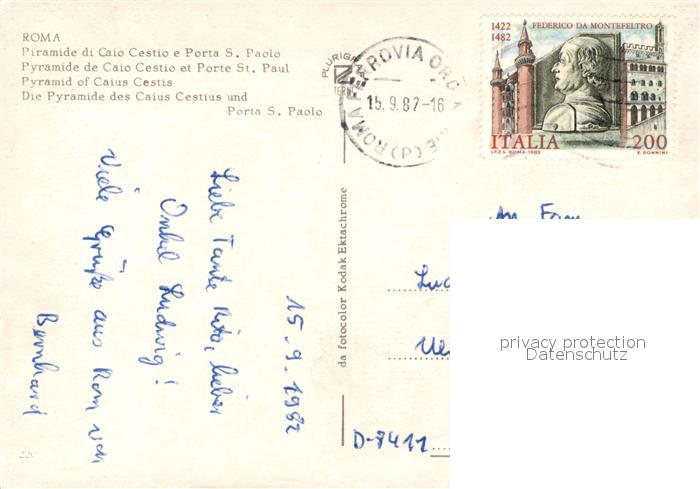 ROMA
Piramide di Caio Cestio e Porta S. Paolo
Pyramide de Caio Cestio et Porte St. Paul
Pyramid of Caius Cestis
Die Pyramide des Caius Cestius und
Porta S. Paolo
PLURIGRAF
TERNI
ROMA FERROVIA
15.9.82-16
(P)
1422
1482
FEDERICO DA MONTEFELTRO
ITALIA 200
I.P.Z.S. ROMA-1982
E. DONNINI
15.9.1982
Liebe Tante Rita, lieber
Onkel Ludwig!
Viele Grüße aus Rom von
Bernhard
da fotocolor Kodak Ektachrome
An Fam
D-8411
privacy protection
Datenschutz